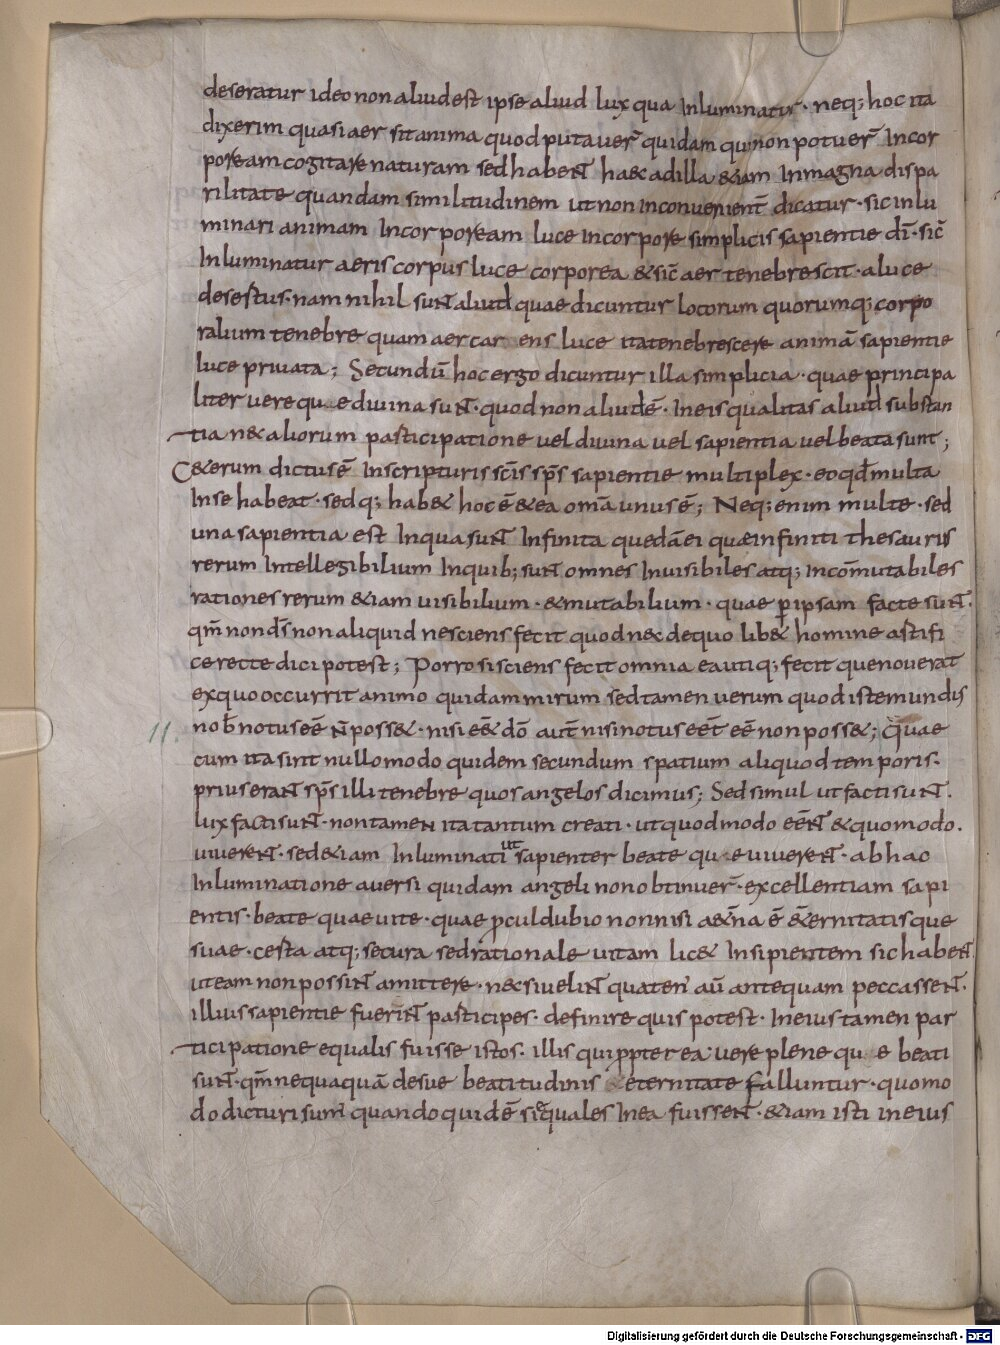 deseratur ideo non aliud est ipse aliud lux qua Inluminatur · neq; hoc ita
dixerim quasi aer sit anima quod putauer̄ quidam qui non potuer̄ Incor
poream cogitare naturam sed habeNt haec ad illa &iam Inmagna dispa
rilitate quandam similitudinem ut non inconuenient̄ dicatur · sic inlu
minari animam Incorpoream luce Incorpore simplicis sapientie dī · sic̄
Inluminatur aeris corpus luce corporea & sic̄ aer tenebrescit · a luce
desertus · nam nihil suNt aliud quae dicuntur locorum quorumq; corpo
ralium tenebre quam aer car ens luce ita tenebrescere animā sapientie
luce priuata ; Secundū hoc ergo dicuntur illa simplicia · quae principa
liter uere qu e diuina suNt · quod non aliud ē · In eis qualitas aliud substan
tia n& aliorum participatione uel diuina uel sapientia uel beata sunt ;
C&erum dictus ē In scripturis scīs sp̄s sapientie multiplex · eo qd̄ multa
In se habeat · sed q; hab& hoc ē & ea omā unus ē ; Neq; enim multe · sed
una sapientia est In qua suNt Infinita quedā ei quae infiniti thesauris
rerum Intellegibilium In quib; suNt omnes Inuisibiles atq; Incōmutabiles
rationes rerum &iam uisibilium · & mutabilium · quae p̄ ipsam facte suNt ·
qm̄ non ds̄ non aliquid nesciens fecit quod nec de quo lib& homine artifi
ce recte dici potest ; Porro si sciens fecit omnia ea utiq; fecit que nouerat
ex quo occurrit animo quidam mirum sed tamen uerum quod iste mundus
11. nob̄ notus eē n̄ poss& · nisi eē& dō aut̄ nisi notus eēt eē non poss& ; Quae
cum ita sint nullo modo quidem secundum spatium aliquod temporis ·
prius eraNt sp̄s illi tenebre quos angelos dicimus ; Sed simul ut facti suNt ·
lux facti suNt · non tameN ita tantum creati · ut quodmodo eēNt & quomodo ·
uiuereNt · sed &iam Inluminati ut sapienter beate qu e uiuereNt · ab hac
Inluminatione auersi quidam angeli non obtinuer̄ · excellentiam sapi
entis · beate quae uite · quae p̄culdubio non nisi aet̄na ē &ernitatis que
suae · certa atq; secura sed rationale uitam lic& Insipientem sic habeNt
ut eam non possiNt amittere · n& si ueliNt quaten' aū antequam peccasseNt ·
illius sapientie fueriNt participes · definire quis potest · In eius tamen par
ticipatione equalis fuisse istos · illis qui ppter ea uere plene qu e beati
suNt · qm̄ nequaquā de sue beatitudinis &eternitate falluntur · quomo
do dicturi sum' quando quidē si equales In ea fuisseNt · &iam isti in eius
Digitalisierung gefördert durch die Deutsche Forschungsgemeinschaft - DFG